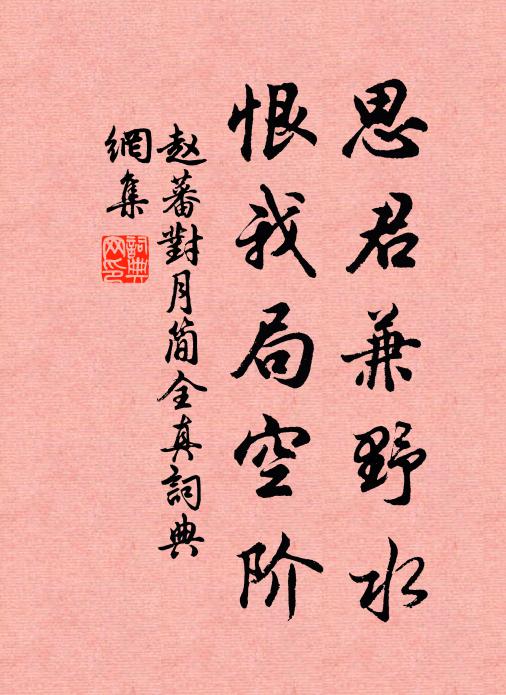 思君兼野水
恨我局空阶
赵蕃對月简全真詞典
網集
詞典
网印